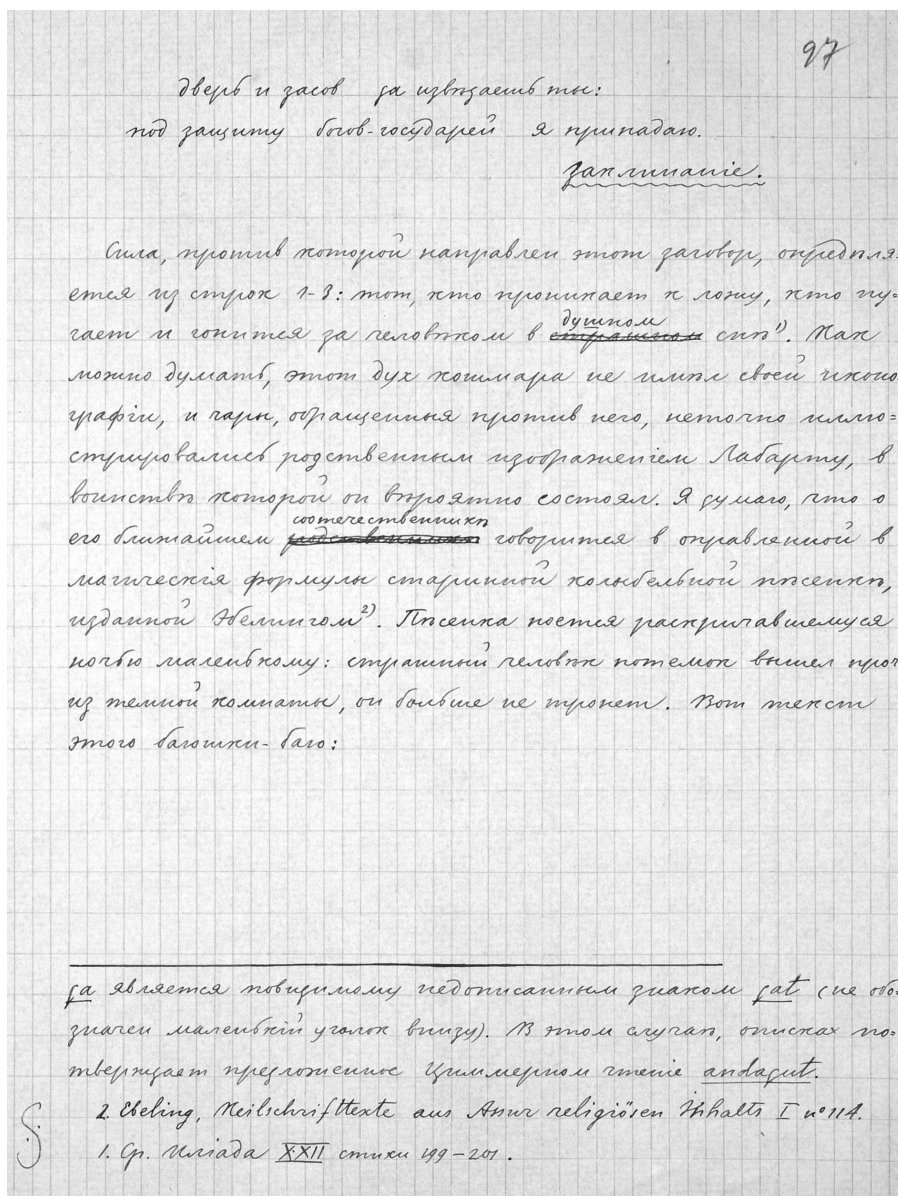 97
дверь и засов да извѣдаешь ты:
под защиту богов-государей я припадаю.
заклинанiе.
Сила, против которой направлен этот заговор, опредѣля-
ется из строк 1-3: тот, кто проникает к ложу, кто пу=
гает и гонится за человѣком в страшном душном снѣ¹⁾. Как
можно думать, этот дух кошмара не имѣл своей иконо
графiи, и чары, обращенныя против него, неточно иллю=
стрировались родственным изображенiем Лабарту, в
воинствѣ которой он вѣроятно состоял. Я думаю, что о
его ближайшем соотечественникѣ говорится в оправленной в
магическiя формулы старинной колыбельной пѣсенкѣ,
изданной Эбелингом²⁾. Пѣсенка поется раскричавшемуся
ночью маленькому: страшный человѣк потемок вышел проч
из темной комнаты, он больше не тронет. Вот текст
этого баюшки-баю:
является повидимому недописанным знаком (не обо-
значен маленькiй уголок внизу). В этом случаѣ, описка по=
тверждает предложенное Циммерном чтенiе andagut.
2. Ebeling, Keilschrifttexte aus Assur religiösen Inhalts I nº 114.
1. Ср. Илiада XXII стихи 199-201.